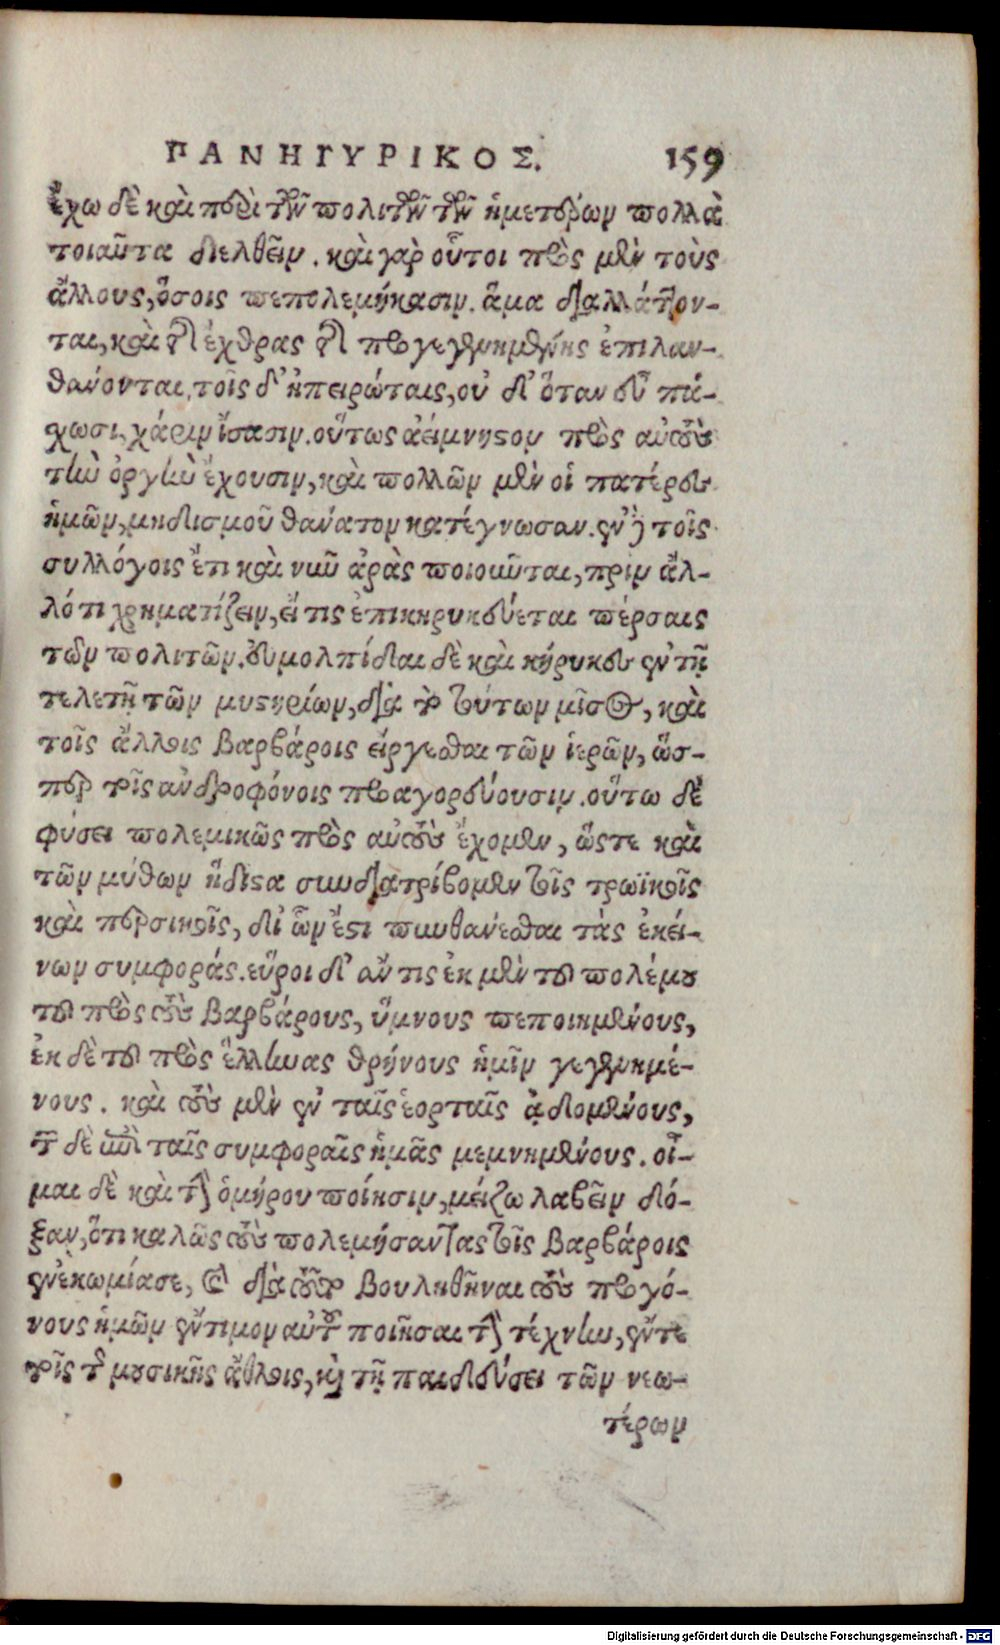 ΠΑΝΗΓΥΡΙΚΟΣ. 159
ἔχω δὲ καὶ περὶ τῶν πολιτῶν τῶν ἡμετέρων πολλὰ
τοιαῦτα διελθεῖν. καὶ γὰρ οὗτοι πρὸς μὲν τοὺς
ἄλλους, ὅσοις πεπολεμήκασιν. ἅμα διαλλάττον-
ται, καὶ τῆς ἐχθρας τῆς προγεγενημένης ἐπιλαν-
θάνονται, τοῖς δ' ἠπειρώταις, οὐ δ' ὅταν εὖ πά-
χωσι, χάριν ἴσασιν. οὕτως ἀείμνηστον πρὸς αὐτοὺς
τὴν ὀργὴν ἔχουσιν, καὶ πολλῶν μὲν οἱ πατέρες
ἡμῶν, μηδισμοῦ θανάτον κατέγνωσαν. ἐν δὲ τοῖς
συλλόγοις ἔτι καὶ νῦν ἀρὰς ποιοῦνται, πρὶν ἄλ-
λό τι χρηματίζειν, εἴ τις ἐπικηρυκεύεται πέρσαις
τῶν πολιτῶν. εὐμολπίδαι δὲ καὶ κήρυκες ἐν τῇ
τελετῇ τῶν μυστηρίων, διὰ τὸ τούτων μῖσος, καὶ
τοῖς ἄλλοις βαρβάροις εἴργεσθαι τῶν ἱερῶν, ὥσ-
περ τοῖς ἀνδροφόνοις προαγορεύουσιν. οὕτω δὲ
φύσει πολεμικῶς πρὸς αὐτοὺς ἔχομεν, ὥςτε καὶ
τῶν μύθων ἥδιστα συνδιατρίβομεν τοῖς τρωϊκοῖς
καὶ περσικοῖς, δι' ὧν ἔστι πυνθάνεσθαι τὰς ἐκεί-
νων συμφοράς. εὕροι δ' ἄν τις ἐκ μὲν τοῦ πολέμου
τοῦ πρὸς τοὺς βαρβάρους, ὕμνους πεποιημένους,
ἐκ δὲ τοῦ πρὸς ἕλληνας θρήνους ἡμῖν γεγενημέ-
νους. καὶ τοὺς μὲν ἐν ταῖς ἑορταῖς ᾀδομένους,
τῶν δὲ ἐπὶ ταῖς συμφοραῖς ἡμᾶς μεμνημένους. οἶ-
μαι δὲ καὶ τὴν ὁμήρου ποίησιν, μείζω λαβεῖν δό-
ξαν, ὅτι καλῶς τοὺς πολεμήσαντας τοῖς βαρβάροις
ἐνεκωμίασε, καὶ διὰ τοῦτο βουληθῆναι τοὺς προγό-
νους ἡμῶν ἔντιμον αὐτοῦ ποιῆσαι τὴν τέχνην, ἔν τε
τοῖς τῆς μουσικῆς ἄθλοις, καὶ τῇ παιδεύσει τῶν νεω-
τέρων
Digitalisierung gefördert durch die Deutsche Forschungsgemeinschaft - DFG